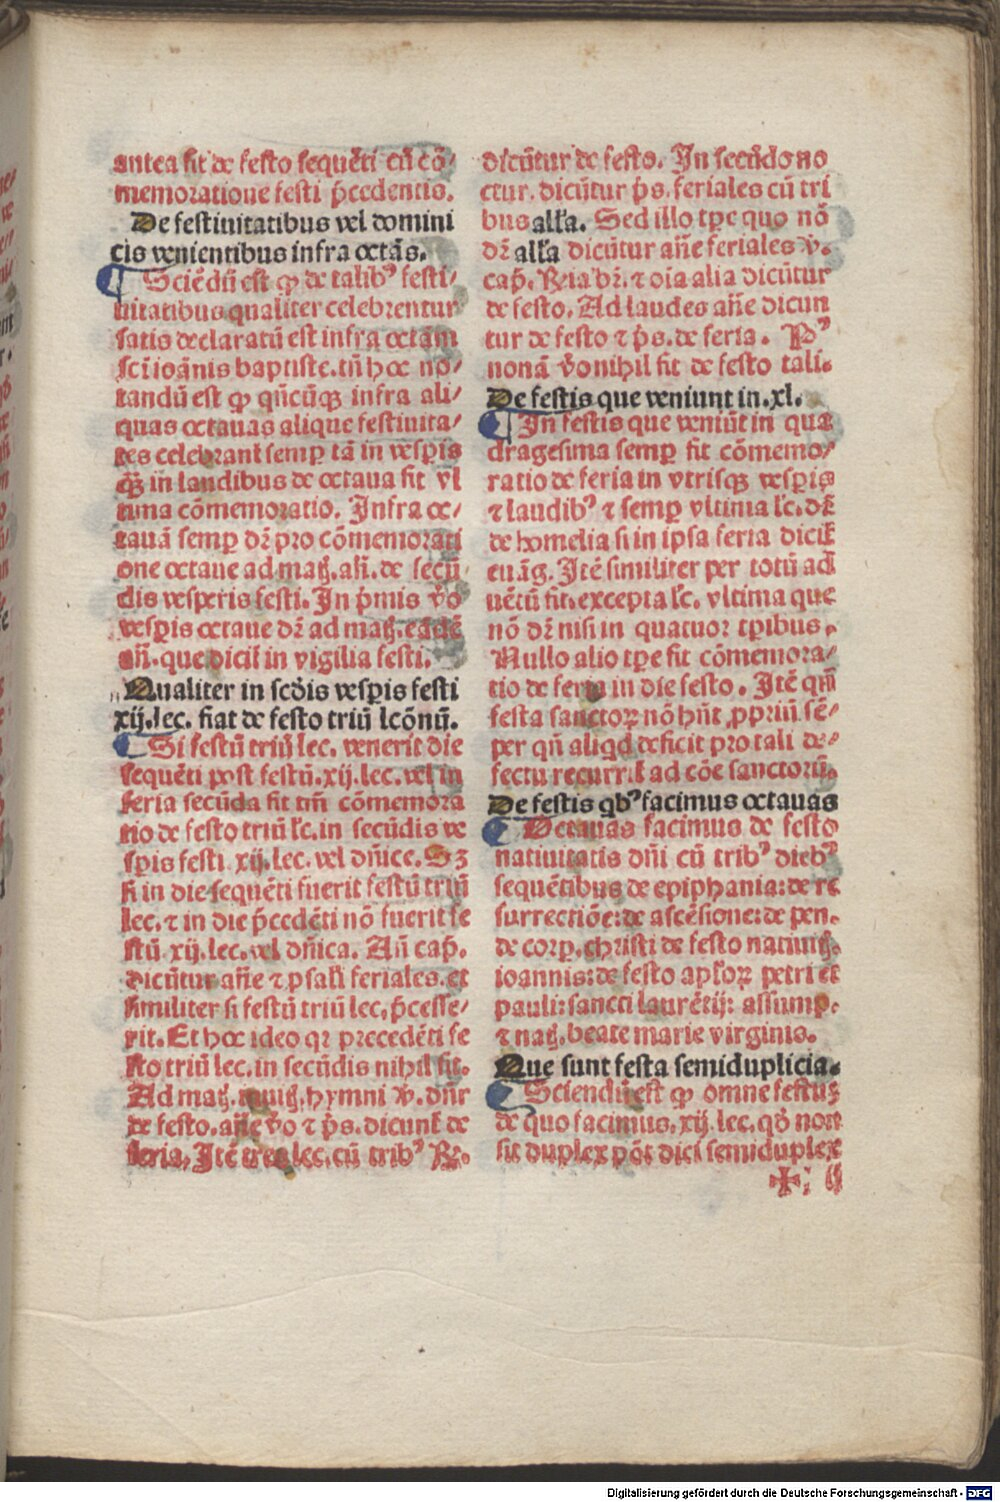 antea fit de festo sequēti cū cō/
memoratione festi p̄cedentis.
De festiuitatibus vel domini
cis venientibus infra octas̄.
Sciēdū est ꝙ de talibꝰ festi/
uitatibus qualiter celebrentur
satis declaratū est infra octam
scī ioānis baptiste. tn̄ hoc no/
tandū est ꝙ qn̄cūqꝫ infra ali/
quas octauas alique festiuita/
tes celebrant̄ semꝑ tā in vesꝑis
qꝫ in laudibus de octaua fit vl
tima cōmemoratio. Infra oc/
tauā semꝑ dr̄ pro cōmemorati
one octaue ad maḡ. añ. de secū
dis vesperis festi. In p̄mis v̄o
vesꝑis octaue dr̄ ad maḡ. eādē
añ. que dicit̄ in vigilia festi.
Qualiter in scd̄is vesꝑis festi
xij. lec. fiat de festo triū lcōnū.
Si festū triū lec. venerit die
sequēti post festū. xij. lec. vel in
feria secūda fit tm̄ cōmemora
tio de festo triū lc̄. in secūdis ve
sꝑis festi xij. lec. vel dn̄ice. Sꝫ
si in die sequēti fuerit festū triū
lec. ⁊ in die p̄cedēti nō fuerit fe
stū xij. lec. vel dn̄ica. Añ cap̄.
dicūtur añe ⁊ psalī feriales. et
similiter si festū triū lec. p̄cesse/
rit. Et hoc ideo qꝛ precedēti fe
sto triū lec. in secūdis nihil fit.
Ad maḡ. inuiḡ. hymni v̄. dn̄r
de festo. añe v̄o ⁊ p̄s. dicunt̄ de
feria. Itē tres lec. cū tribꝰ R̄.
dicūtur de festo. In secūdo no
ctur. dicūtur p̄s. feriales cū tri
bus all̄a. Sed illo tꝑe quo nō
dr̄ all̄a dicūtur añe feriales v̄.
cap̄. R̄ia br̄. ⁊ oīa alia dicūtur
de festo. Ad laudes añe dicun
tur de festo ⁊ p̄s. de feria. Pꝰ
nonā v̄o nihil fit de festo tali.
De festis que veniunt in. xl.
In festis que veniūt in qua
dragesima semꝑ fit cōmemo/
ratio de feria in vtrisqꝫ vesꝑis
⁊ laudibꝰ ⁊ semꝑ vltima lc̄. dr̄
de homelia si in ipsa feria dicit̄
euāg. Itē similiter per totū ad
uētū fit. excepta lc̄. vltima que
nō dr̄ nisi in quatuor tꝑibus.
Nullo alio tꝑe fit cōmemora/
tio de feria in die festo. Itē qn̄
festa sanctoꝝ nō hn̄t ꝓpriū sē/
per qn̄ aliqd deficit pro tali de/
fectu recurrit̄ ad cōe sanctorū.
De festis qbꝰ facimus octauas
Octauas facimus de festo
natiuitatis dn̄i cū tribꝰ diebꝰ
sequētibus de epiphania: de re
surrectiōe: de ascēsione: de pen.
de corꝑ. christi de festo natiuit̄.
ioannis: de festo apl̄oꝝ petri et
pauli: sancti laurētij: assump.
⁊ nat̄. beate marie virginis.
Que sunt festa semiduplicia.
Sciendū est ꝙ omne festuꝫ
de quo facimus. xij. lec. qd̄ non
sit duplex pōt dici semiduplex
✠